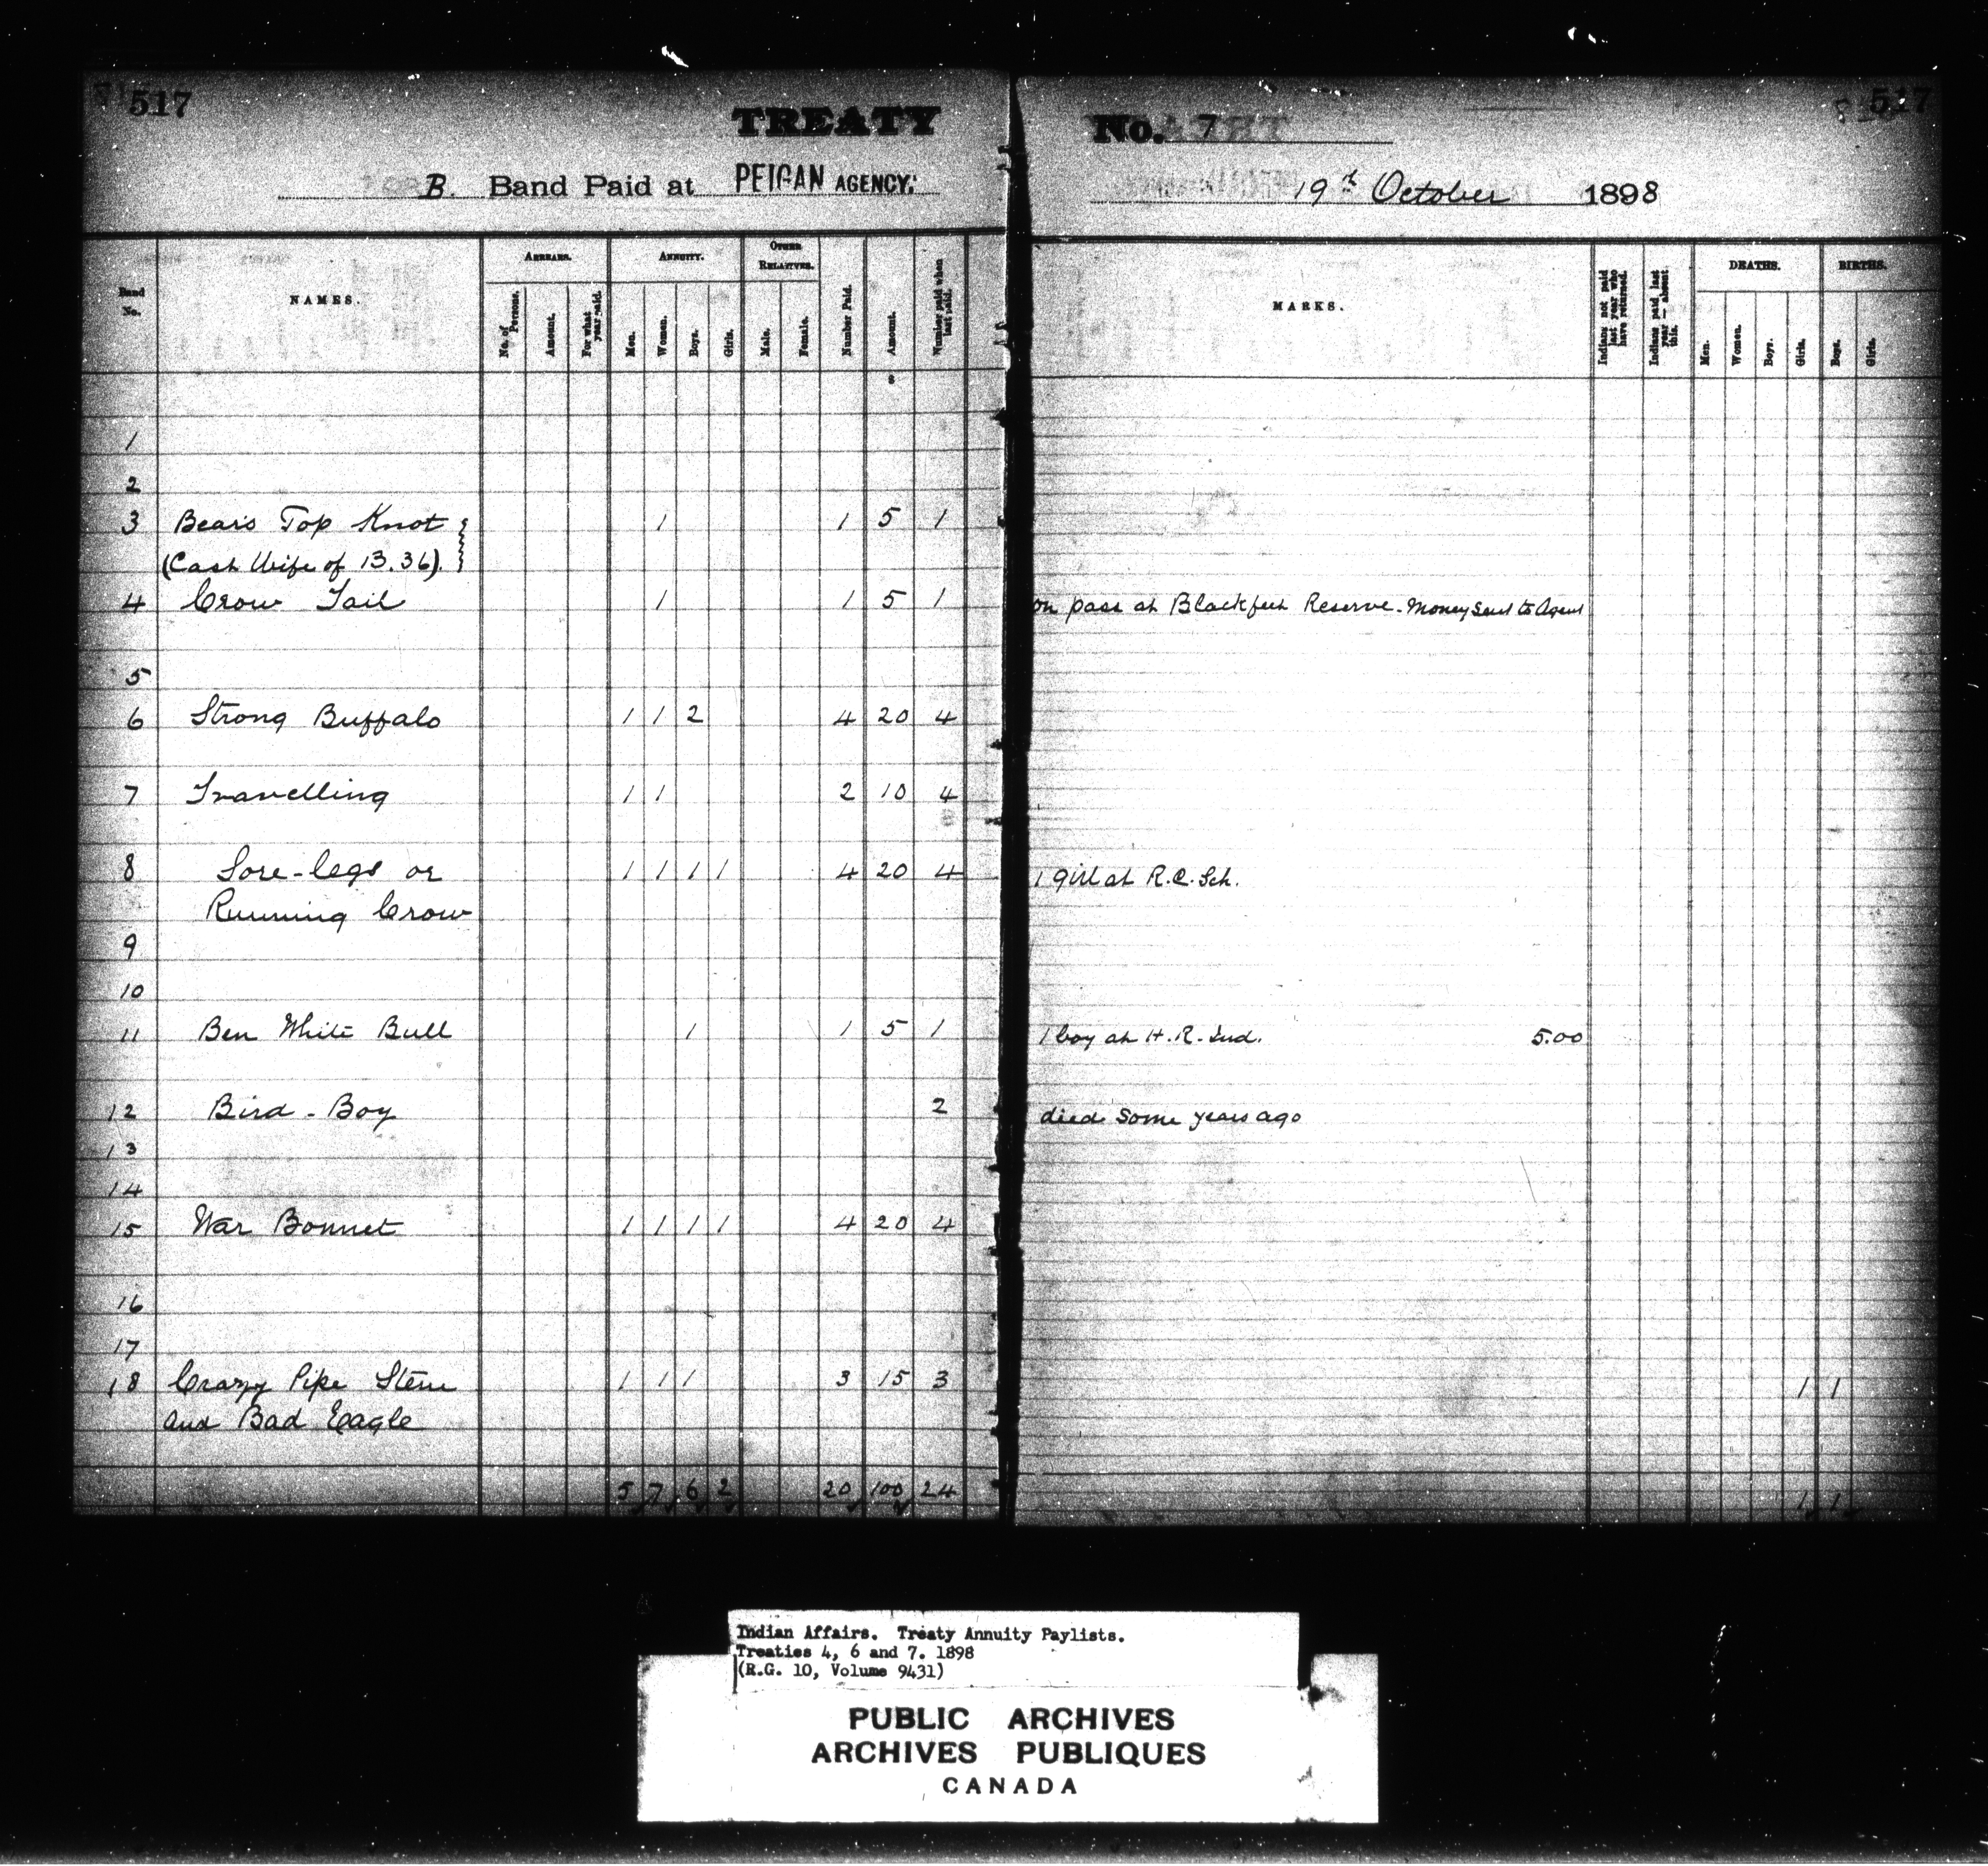 517
TREATY
No. 7
517
B. Band Paid at PEIGAN AGENCY.
19th October 1898
Band No.
NAMES.
ARREARS.
No. of Persons.
Amount.
For what year paid.
ANNUITY.
Men.
Women.
Boys.
Girls.
OTHER RELATIVES.
Male.
Female.
Number Paid.
Amount.
Number paid when last paid.
MARKS.
Indians not paid last year who have returned.
Indians paid last year — absent this.
DEATHS.
Men.
Women.
Boys.
Girls.
BIRTHS.
Boys.
Girls.
$
1
2
3 Bears Top Knot 1 1 5 1
(Cash Wife of B.36)
4 Crow Tail 1 1 5 1 on pass at Blackfeet Reserve - Money sent to Agent
5
6 Strong Buffalo 1 1 2 4 20 4
7 Travelling 1 1 2 10 4
8 Sore-legs or 1 1 1 1 4 20 4 1 girl at R.C. Sch.
Running Crow
9
10
11 Ben White Bull 1 1 5 1 1 boy at H.R. Ind. 5.00
12 Bird-Boy 2 died some years ago
13
14
15 War Bonnet 1 1 1 1 4 20 4
16
17
18 Crazy Pipe Stem 1 1 1 3 15 3 1 1
and Bad Eagle
5 7 6 2 20 100 24 1 1
Indian Affairs. Treaty Annuity Paylists.
Treaties 4, 6 and 7. 1898
(R.G. 10, Volume 9431)
PUBLIC ARCHIVES
ARCHIVES PUBLIQUES
CANADA